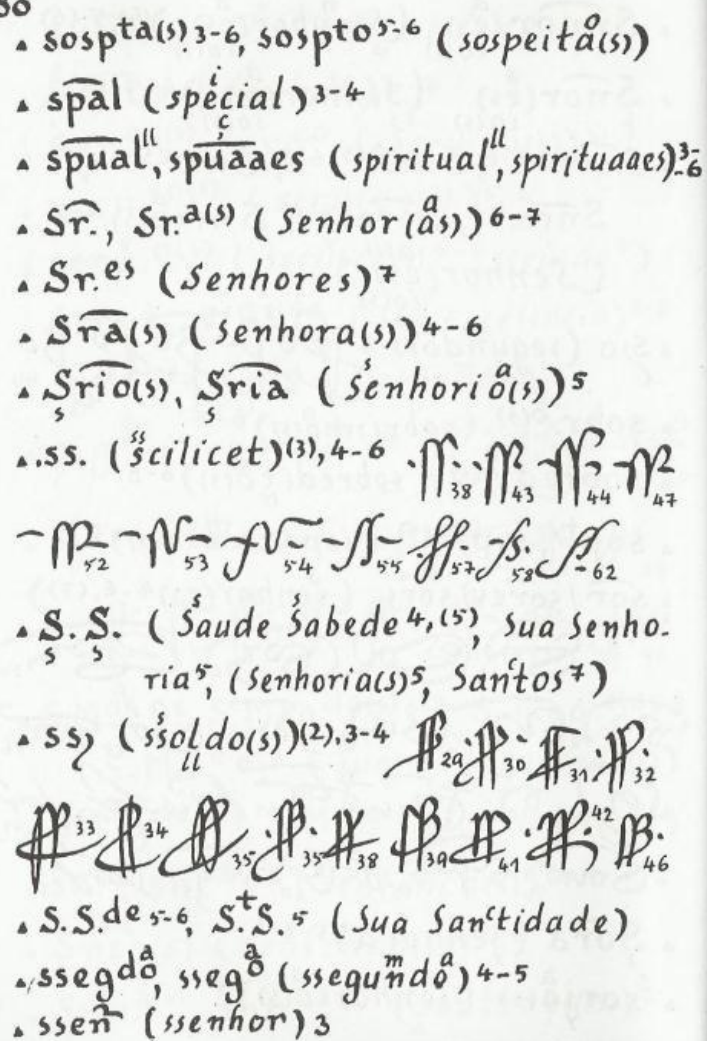 ▴ sosp^ta(s) 3-6, sosp^to 5-6 (sospeitåo(s))
▴ sp͞al (special) 3-4
▴ sp͞ual, sp͞uaaes (spiritual, spirituaaes) 3-6
▴ Sȓ., Sr.^a(s) (Senhor(as)) 6-7
▴ Sr.^es (Senhores) 7
▴ S͞ra(s) (Senhora(s)) 4-6
▴ S͞rio(s), S͞ria (Senhorio(s)) 5
▴ .ss. (scilicet) (3), 4-6 38 43 44 47
52 53 54 55 57 58 62
▴ S. S. (Saude Sabede 4, (5), Sua Senho-
ria 5, (Senhoria(s) 5, Santos 7)
▴ ss (ssoldo(s)) (2), 3-4 29 30 31 32
33 34 35 35 38 39 41 42 46
▴ S.S.^de 5-6, S.^+S. 5 (Sua Sanctidade)
▴ ssegdo, ssego (ssegundo) 4-5
▴ sseñ (ssenhor) 3